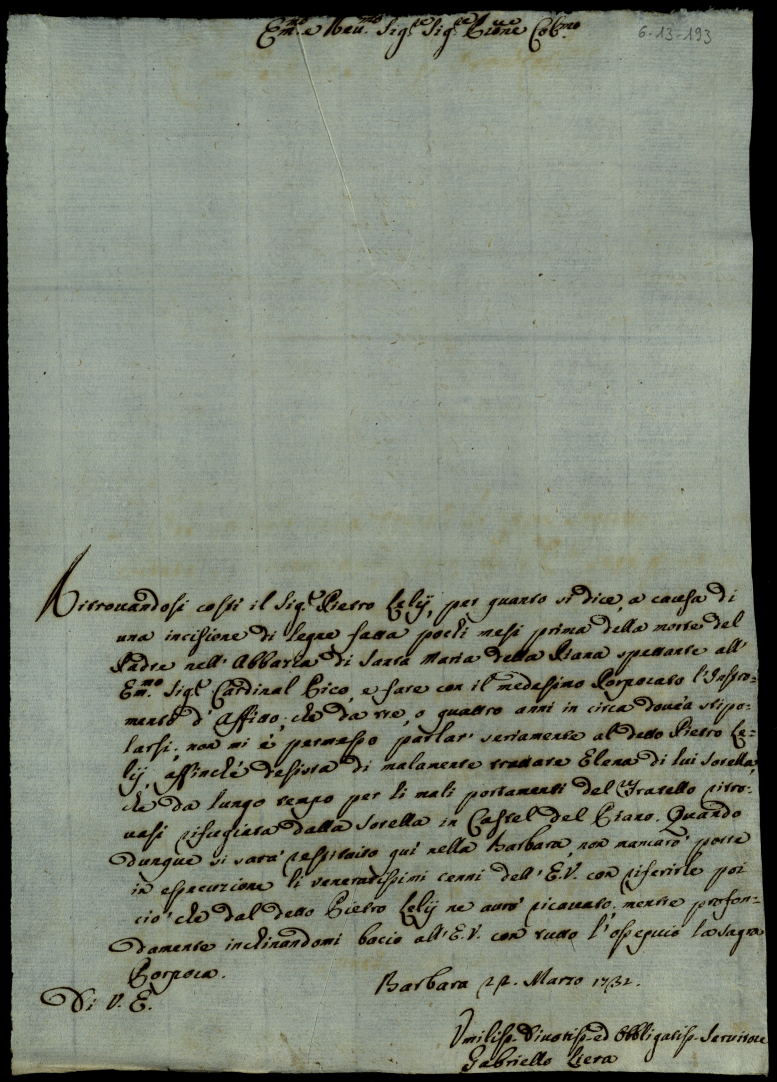 Em.mo e Reu.mo Sig.re Sig.re P̃rone Col.mo
6-13-193
Ritrouandosi costi il Sig.r Pietro Lelij, per quanto si dice, a causa di
una incisione di legne fatta pochi mesi prima della morte del
Padre nell' Abbazia di Santa Maria della Piana spettante all'
Em.mo Sig.r Cardinal Pico, e fare con il medesimo Porporato l'Instro-
mento d' Affitto, che da tre, o quattro anni in circa doueva stipo-
larsi, non mi è permesso parlar' seriamente al detto Pietro Le-
lij, affinché desista di malamente trattare Elena di lui sorella,
che da lungo tempo per li mali portamenti del Fratello ritro-
uasi rifugiata dalla sorella in Castel del Piano. Quando
dunque si sarà restituito quì nella Barbara, non mancarò porre
in esecuzione li veneratissimi cenni dell' E.V. con riferirle poi
ciò che dal detto Pietro Lelij ne aurò ricauato. mentre profon-
damente inchinandomi bacio all' E.V. con tutto l'ossequio la sagra
Porpora.
Barbara 22. Marzo 1732.
Di V. E.
Vmiliss. Diuotiss. ed Obbligatiss. Seruitore
Gabriello Liera